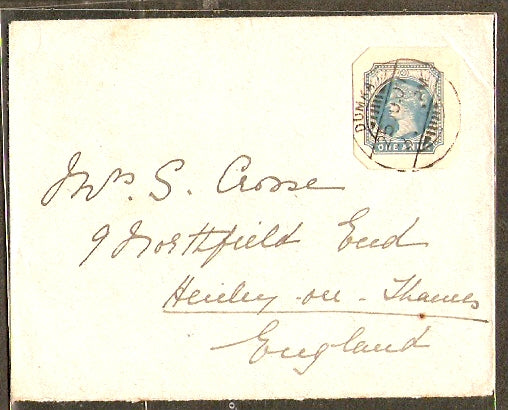 DUMKA
ONE ANNA
Mrs. S. Crosse
9 Northfield End
Henley-on-Thames
England